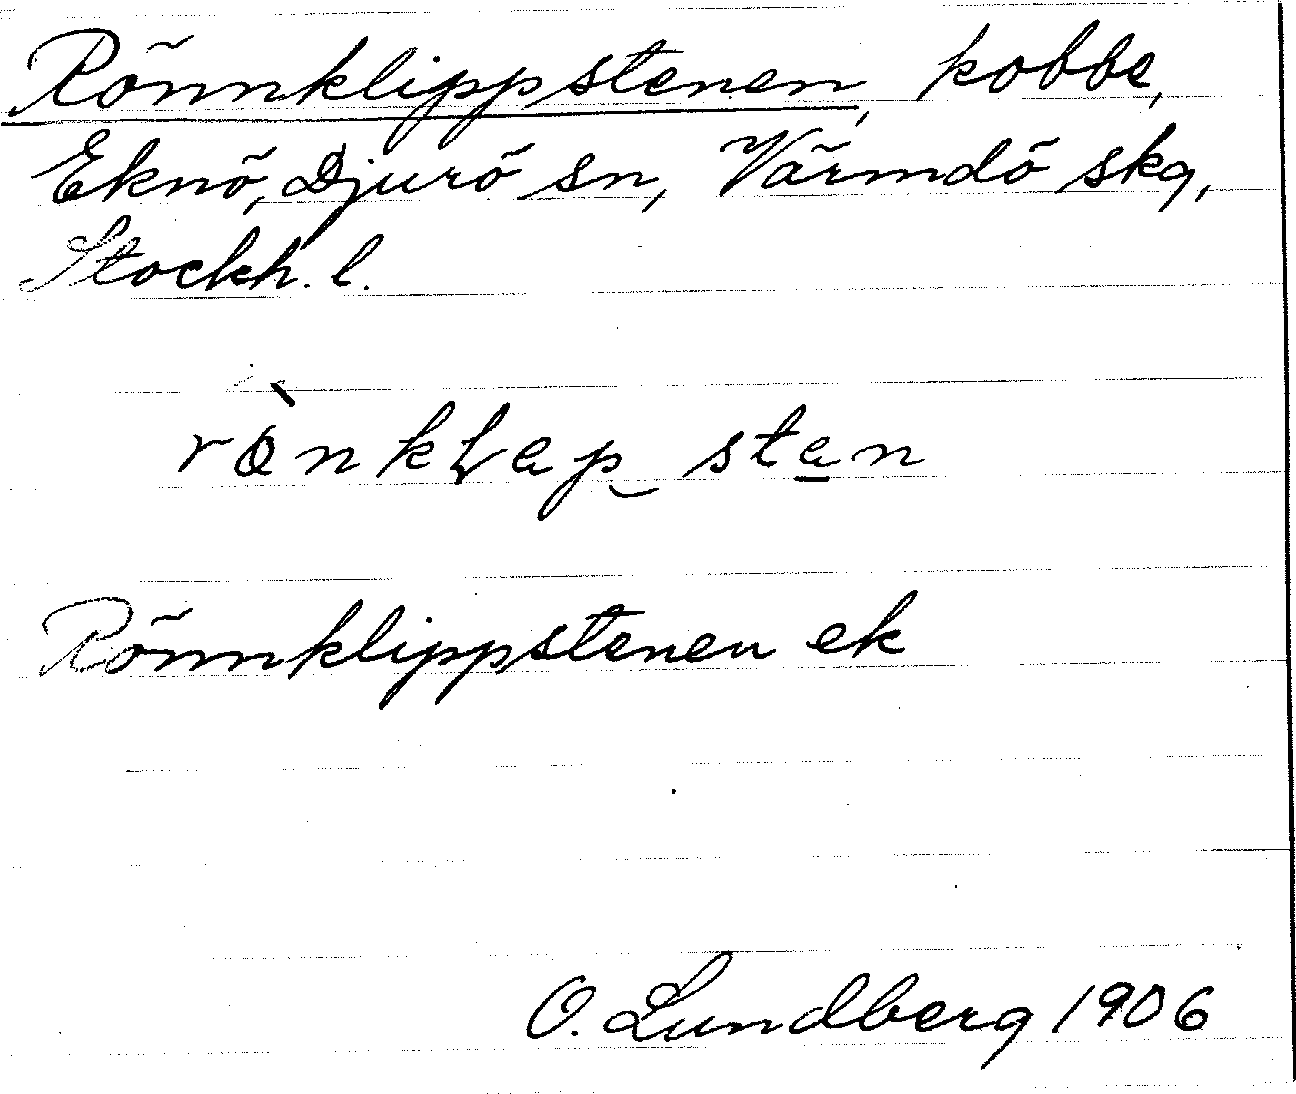 Rönnklippstenen, kobbe,
Eknö, Djurö sn, Värmdö skg,
Stockh. l.
Rönnklippstenen ek
O. Lundberg 1906